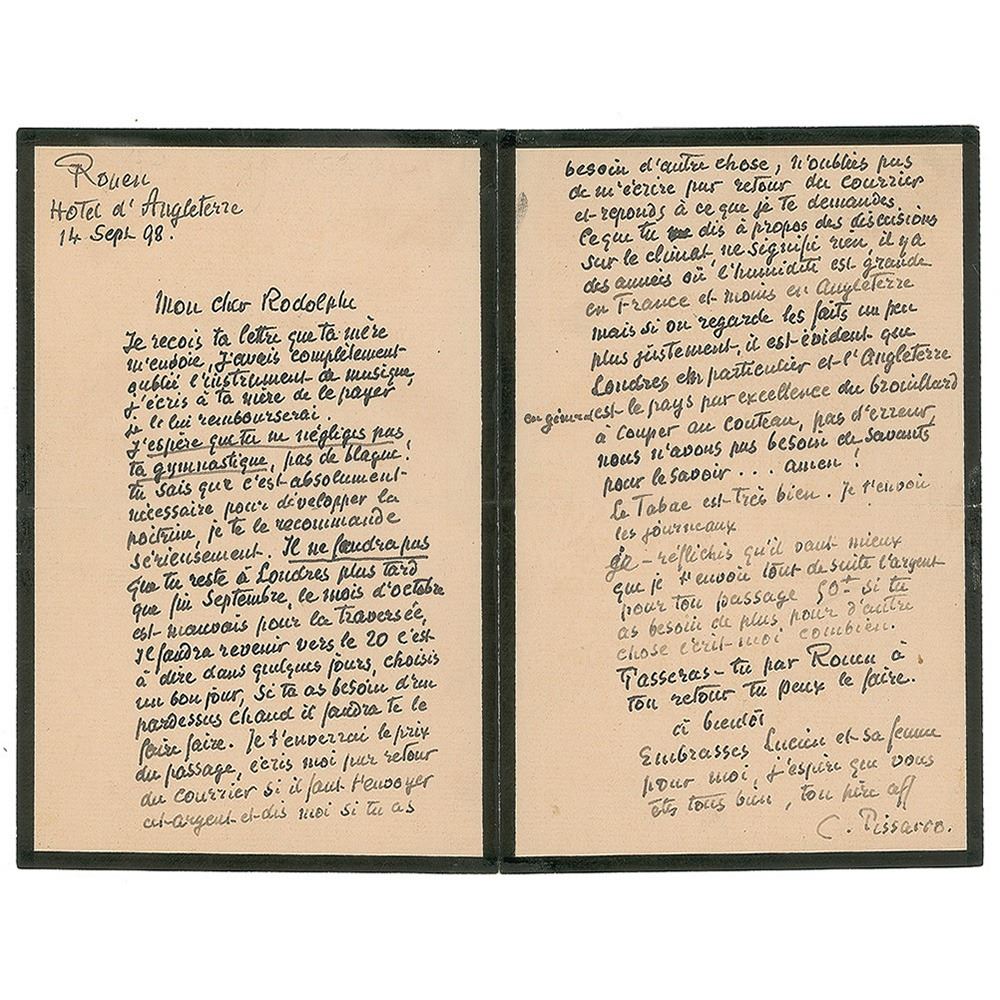 Rouen
Hotel d'Angleterre
14 Sept 98.
Mon cher Rodolphe
Je recois ta lettre que ta mère
m'envoie, J'avais complètement
oublié l'instrument de musique,
j'écris à ta mère de le payer
je le lui rembourserai.
J'espère que tu ne négliges pas
ta gymnastique, pas de blague!
tu sais que c'est absolument
nécessaire pour développer la
poitrine, je te le recommande
sérieusement. Il ne faudra pas
que tu reste à Londres plus tard
que fin Septembre, le mois d'octobre
est mauvais pour la traversée,
Il faudra revenir vers le 20 c'est
à dire dans quelques jours, choisis
un bon jour, Si tu as besoin d'un
pardessus chaud il faudra te le
faire faire. Je t'enverrai le prix
du passage, écris moi par retour
du courrier si il faut t'envoyer
cet argent et dis moi si tu as
besoin d'autre chose, n'oublies pas
de m'écrire par retour du courrier
et réponds à ce que je te demandes.
Ce que tu dis à propos des discusions
sur le climat ne signifi rien, il y a
des années où l'humidité est grande
en France et moins en Angleterre
mais si on regarde les faits un peu
plus justement, il est évident que
Londres en particulier et l'Angleterre
en général est le pays par excellence du brouillard
à couper au couteau, pas d'erreur,
nous n'avons pas besoin de savants
pour le savoir... amen!
Le Tabac est très bien. Je t'envoie
les journeaux
je réflichis qu'il vaut mieux
que je t'envoie tout de suite l'argent
pour ton passage 50f si tu
as besoin de plus pour d'autre
chose écrit-moi combien.
Passeras-tu par Rouen à
ton retour tu peux le faire.
à bientôt
Embrasses Lucien et sa femme
pour moi, j'espère que vous
êtes tous bien, ton père aff
C. Pissarro.